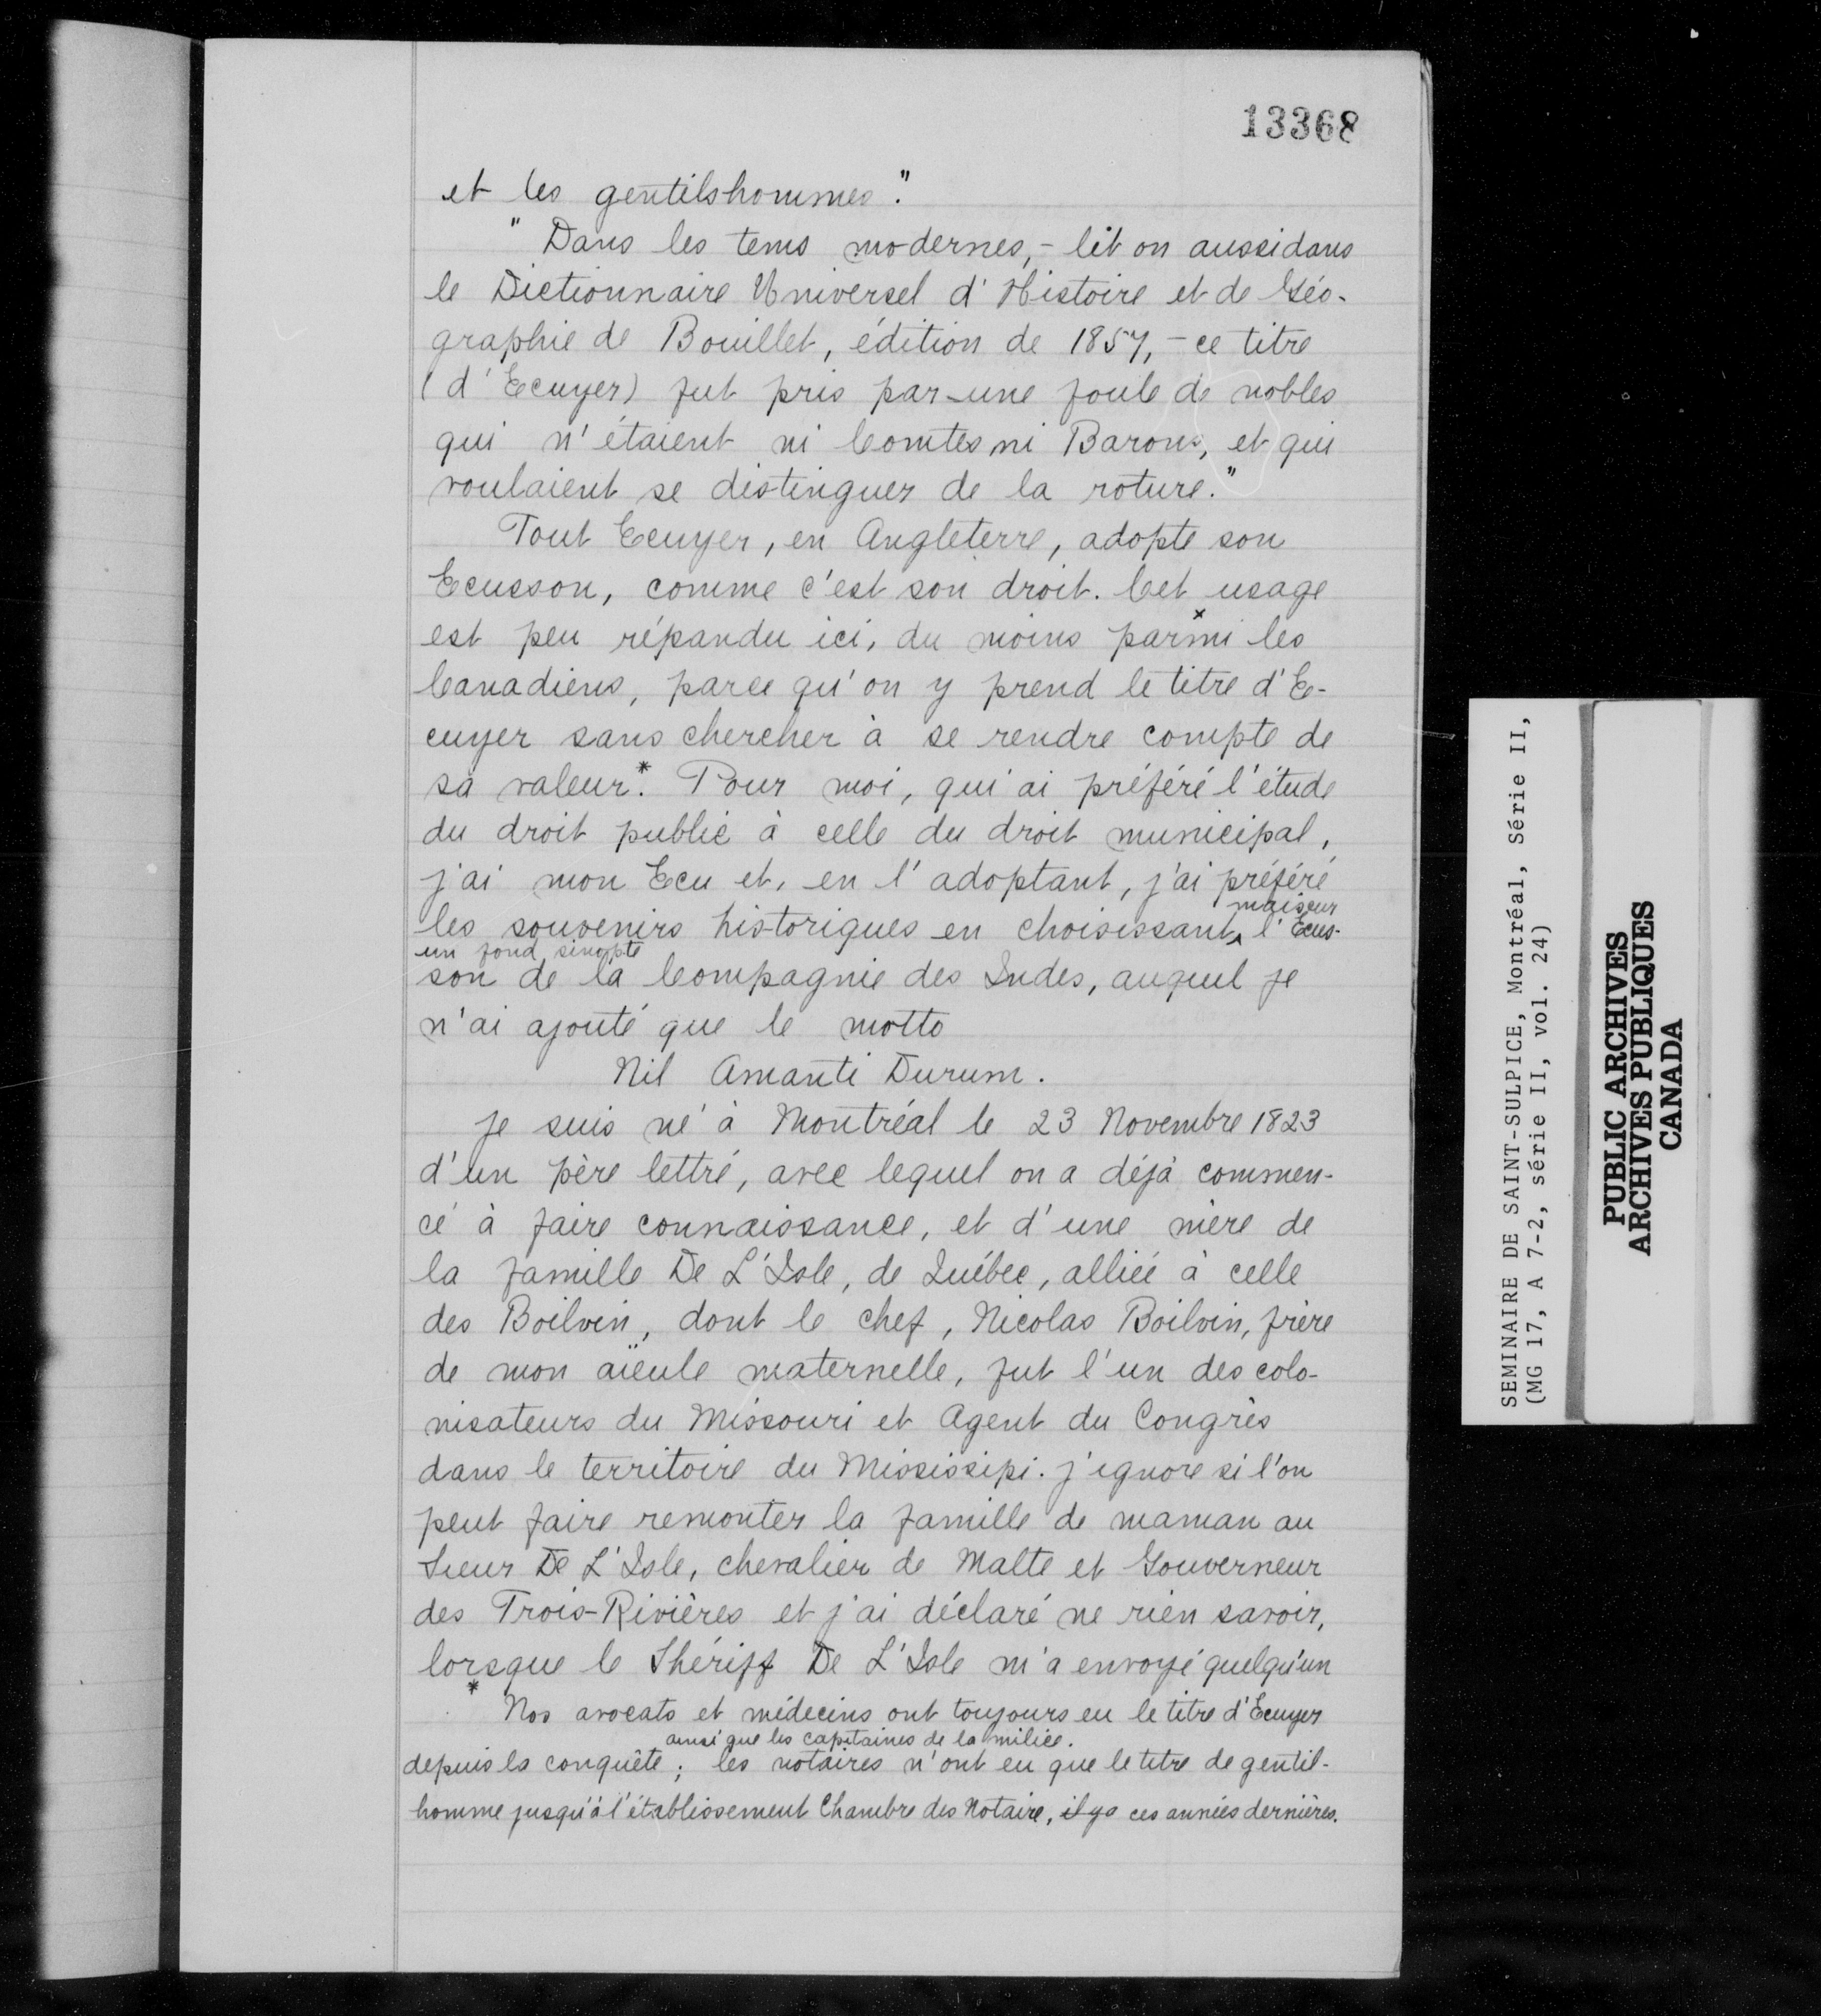 13368
et les gentilshommes."
"Dans les tems modernes, - lit on aussi dans
le Dictionnaire Universel d'Histoire et de Géo-
graphie de Bouillet, édition de 1857, - ce titre
(d'Ecuyer) fut pris par une foule de nobles
qui n'étaient ni Comtes ni Barons, et qui
voulaient se distinguer de la roture."
Tout Ecuyer, en Angleterre, adopte son
Ecusson, comme c'est son droit. Cet usage
est peu répandu ici, du moins parmi les
x
Canadiens, parce qu'on y prend le titre d'E-
cuyer sans chercher à se rendre compte de
sa valeur.* Pour moi, qui ai préféré l'étude
du droit public à celle du droit municipal,
j'ai mon Ecu et, en l'adoptant, j'ai préféré
mais sur
les souvenirs historiques en choisissant ^ l'Ecus-
un fond sinopte
son de la Compagnie des Indes, auquel je
n'ai ajouté que le motto
Nil Amanti Durum.
Je suis né à Montréal le 23 Novembre 1823
d'un père lettré, avec lequel on a déjà commen-
cé à faire connaissance, et d'une mère de
la famille De L'Isle, de Québec, alliée à celle
des Boilvin, dont le chef, Nicolas Boilvin, frère
de mon aïeule maternelle, fut l'un des colo-
nisateurs du Missouri et Agent du Congrès
dans le territoire du Mississipi. J'ignore si l'on
peut faire remonter la famille de maman au
Sieur De L'Isle, chevalier de Malte et Gouverneur
des Trois-Rivières et j'ai déclaré ne rien savoir,
lorsque le Shériff De L'Isle m'a envoyé quelqu'un
* Nos avocats et médecins ont toujours eu le titre d'Ecuyer
ainsi que les capitaines de la milice.
depuis la conquête ; les notaires n'ont eu que le titre de gentil-
homme jusqu'à l'établissement Chambre des Notaire, il ya ces années dernières.
SEMINAIRE DE SAINT-SULPICE, Montréal, Série II,
(MG 17, A 7-2, série II, vol. 24)
PUBLIC ARCHIVES
ARCHIVES PUBLIQUES
CANADA